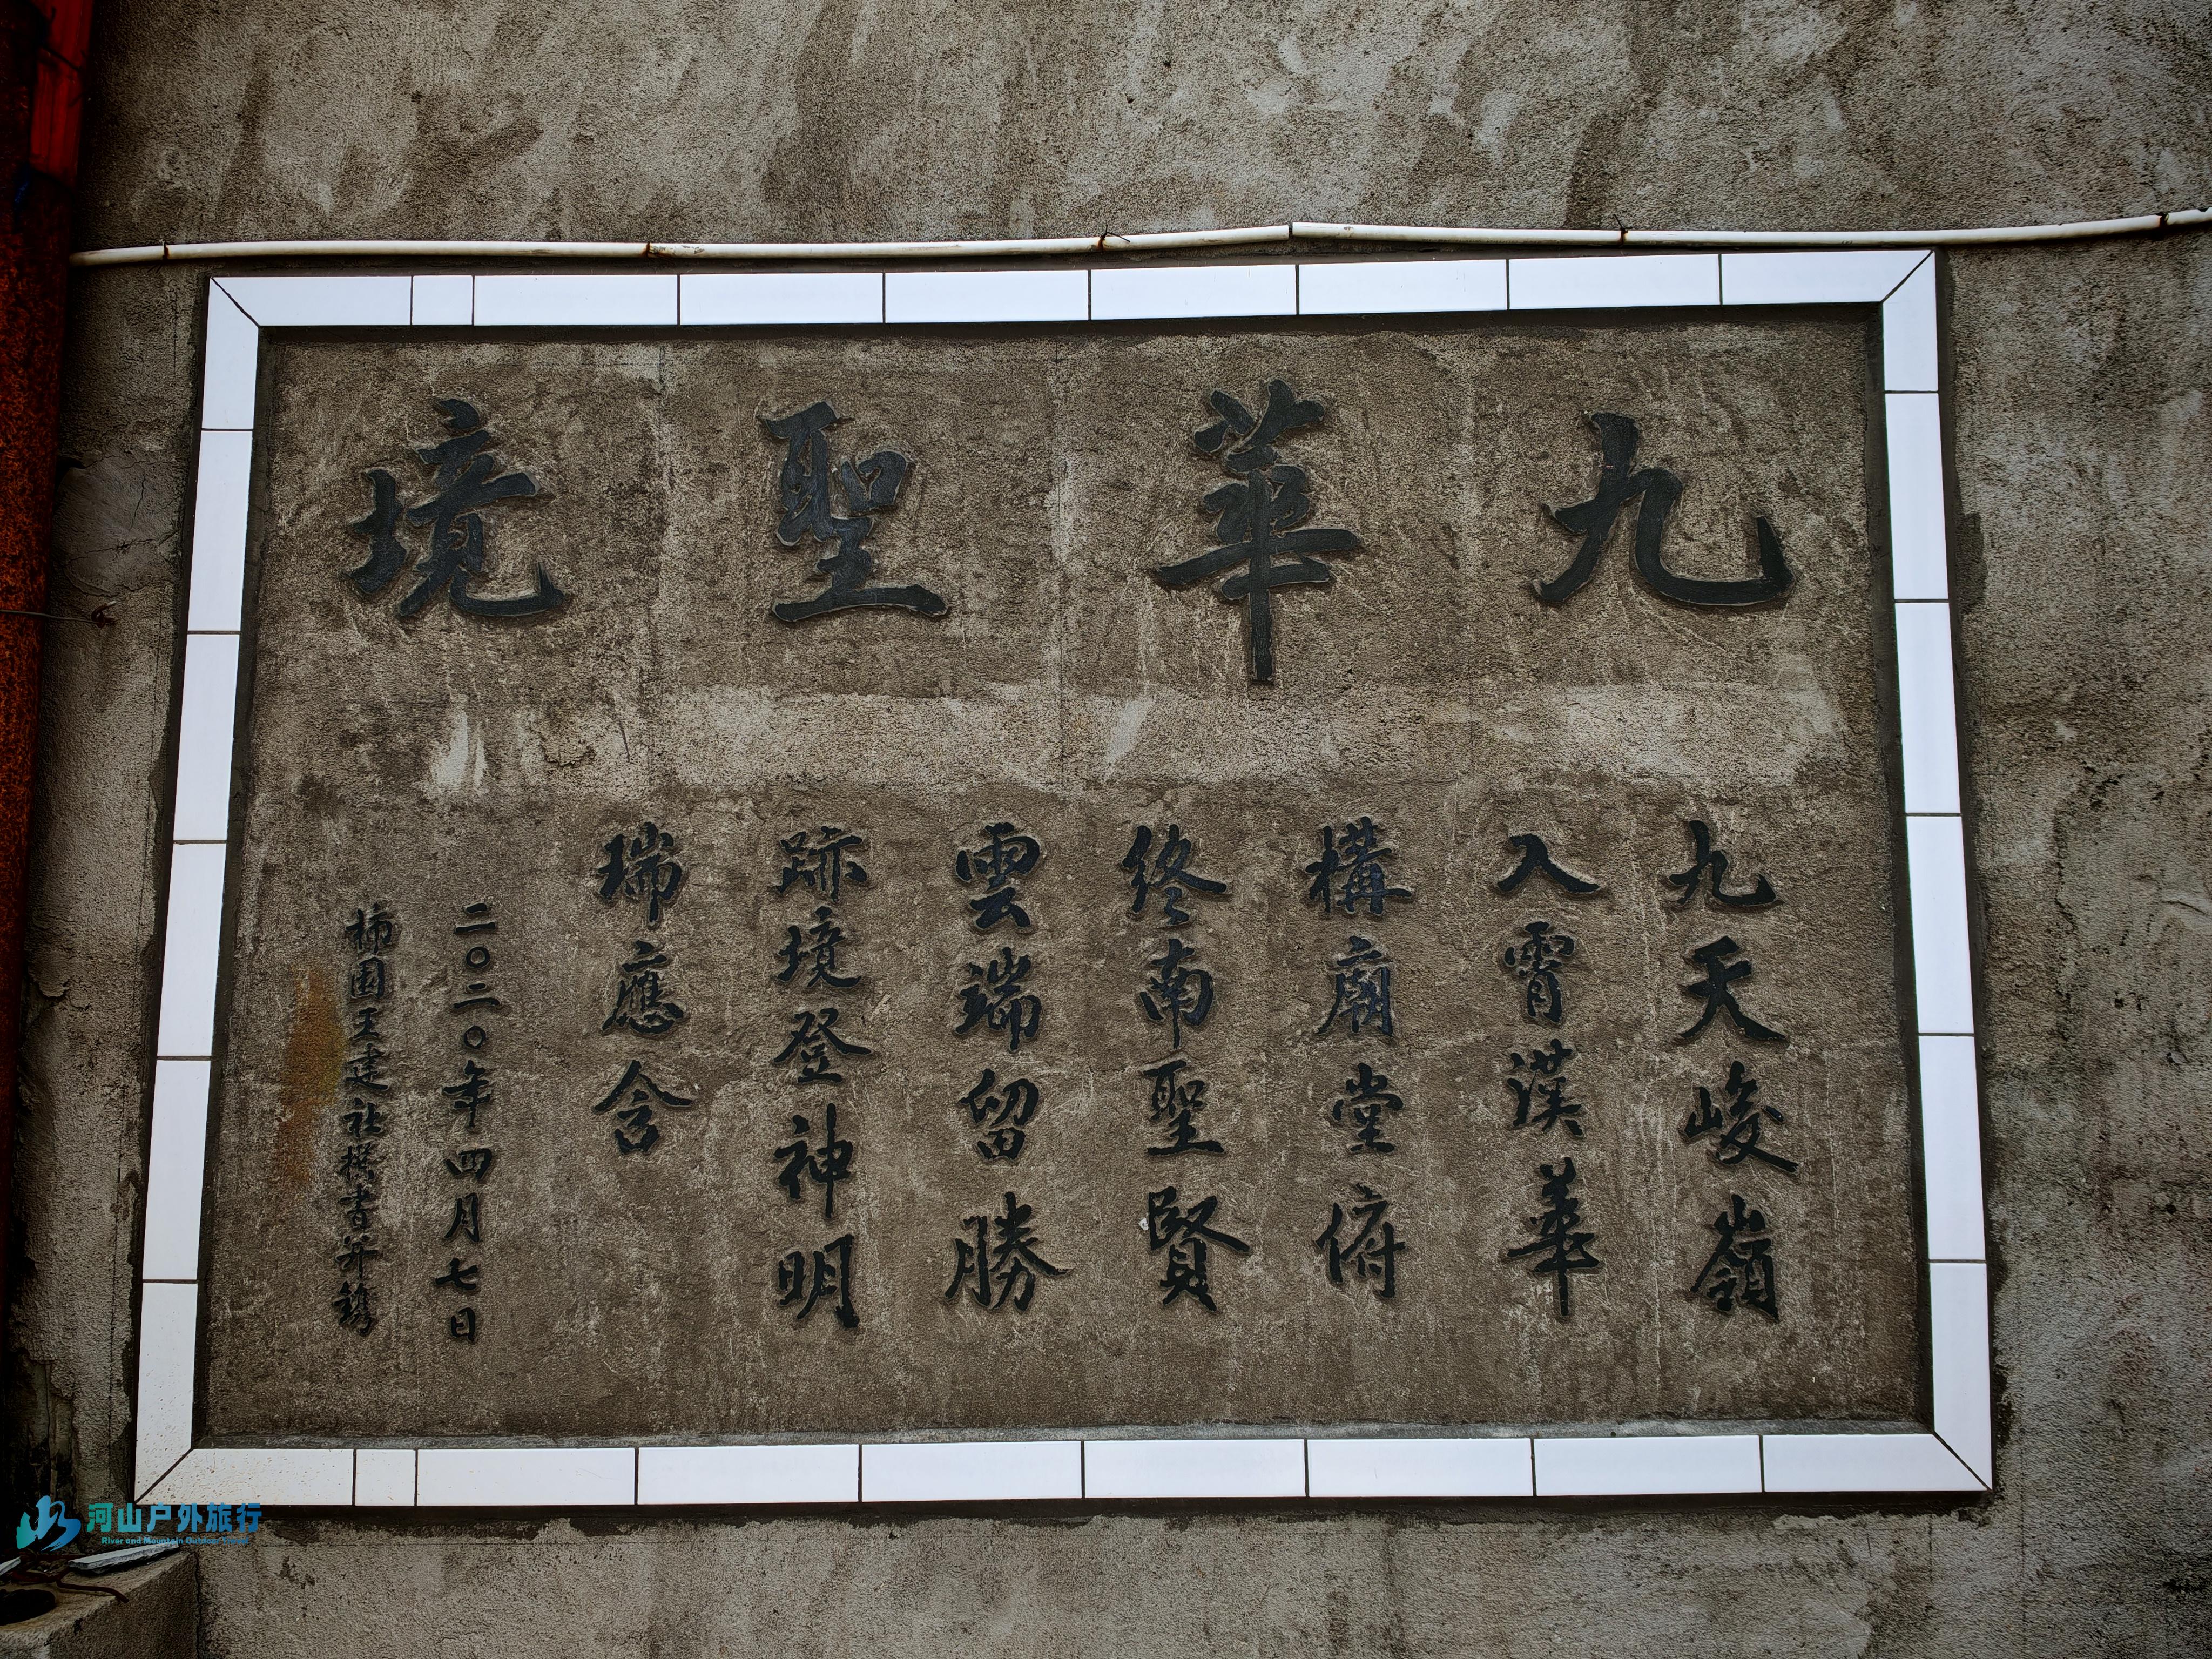 九華聖境
九天峻嶺
入霄漢華
構廟堂俯
終南聖賢
雲端留勝
跡境登神明
瑞應含
二〇二〇年四月七日
柿園王建社撰書并鐫
河山户外旅行
River and Mountain Outdoor Travel